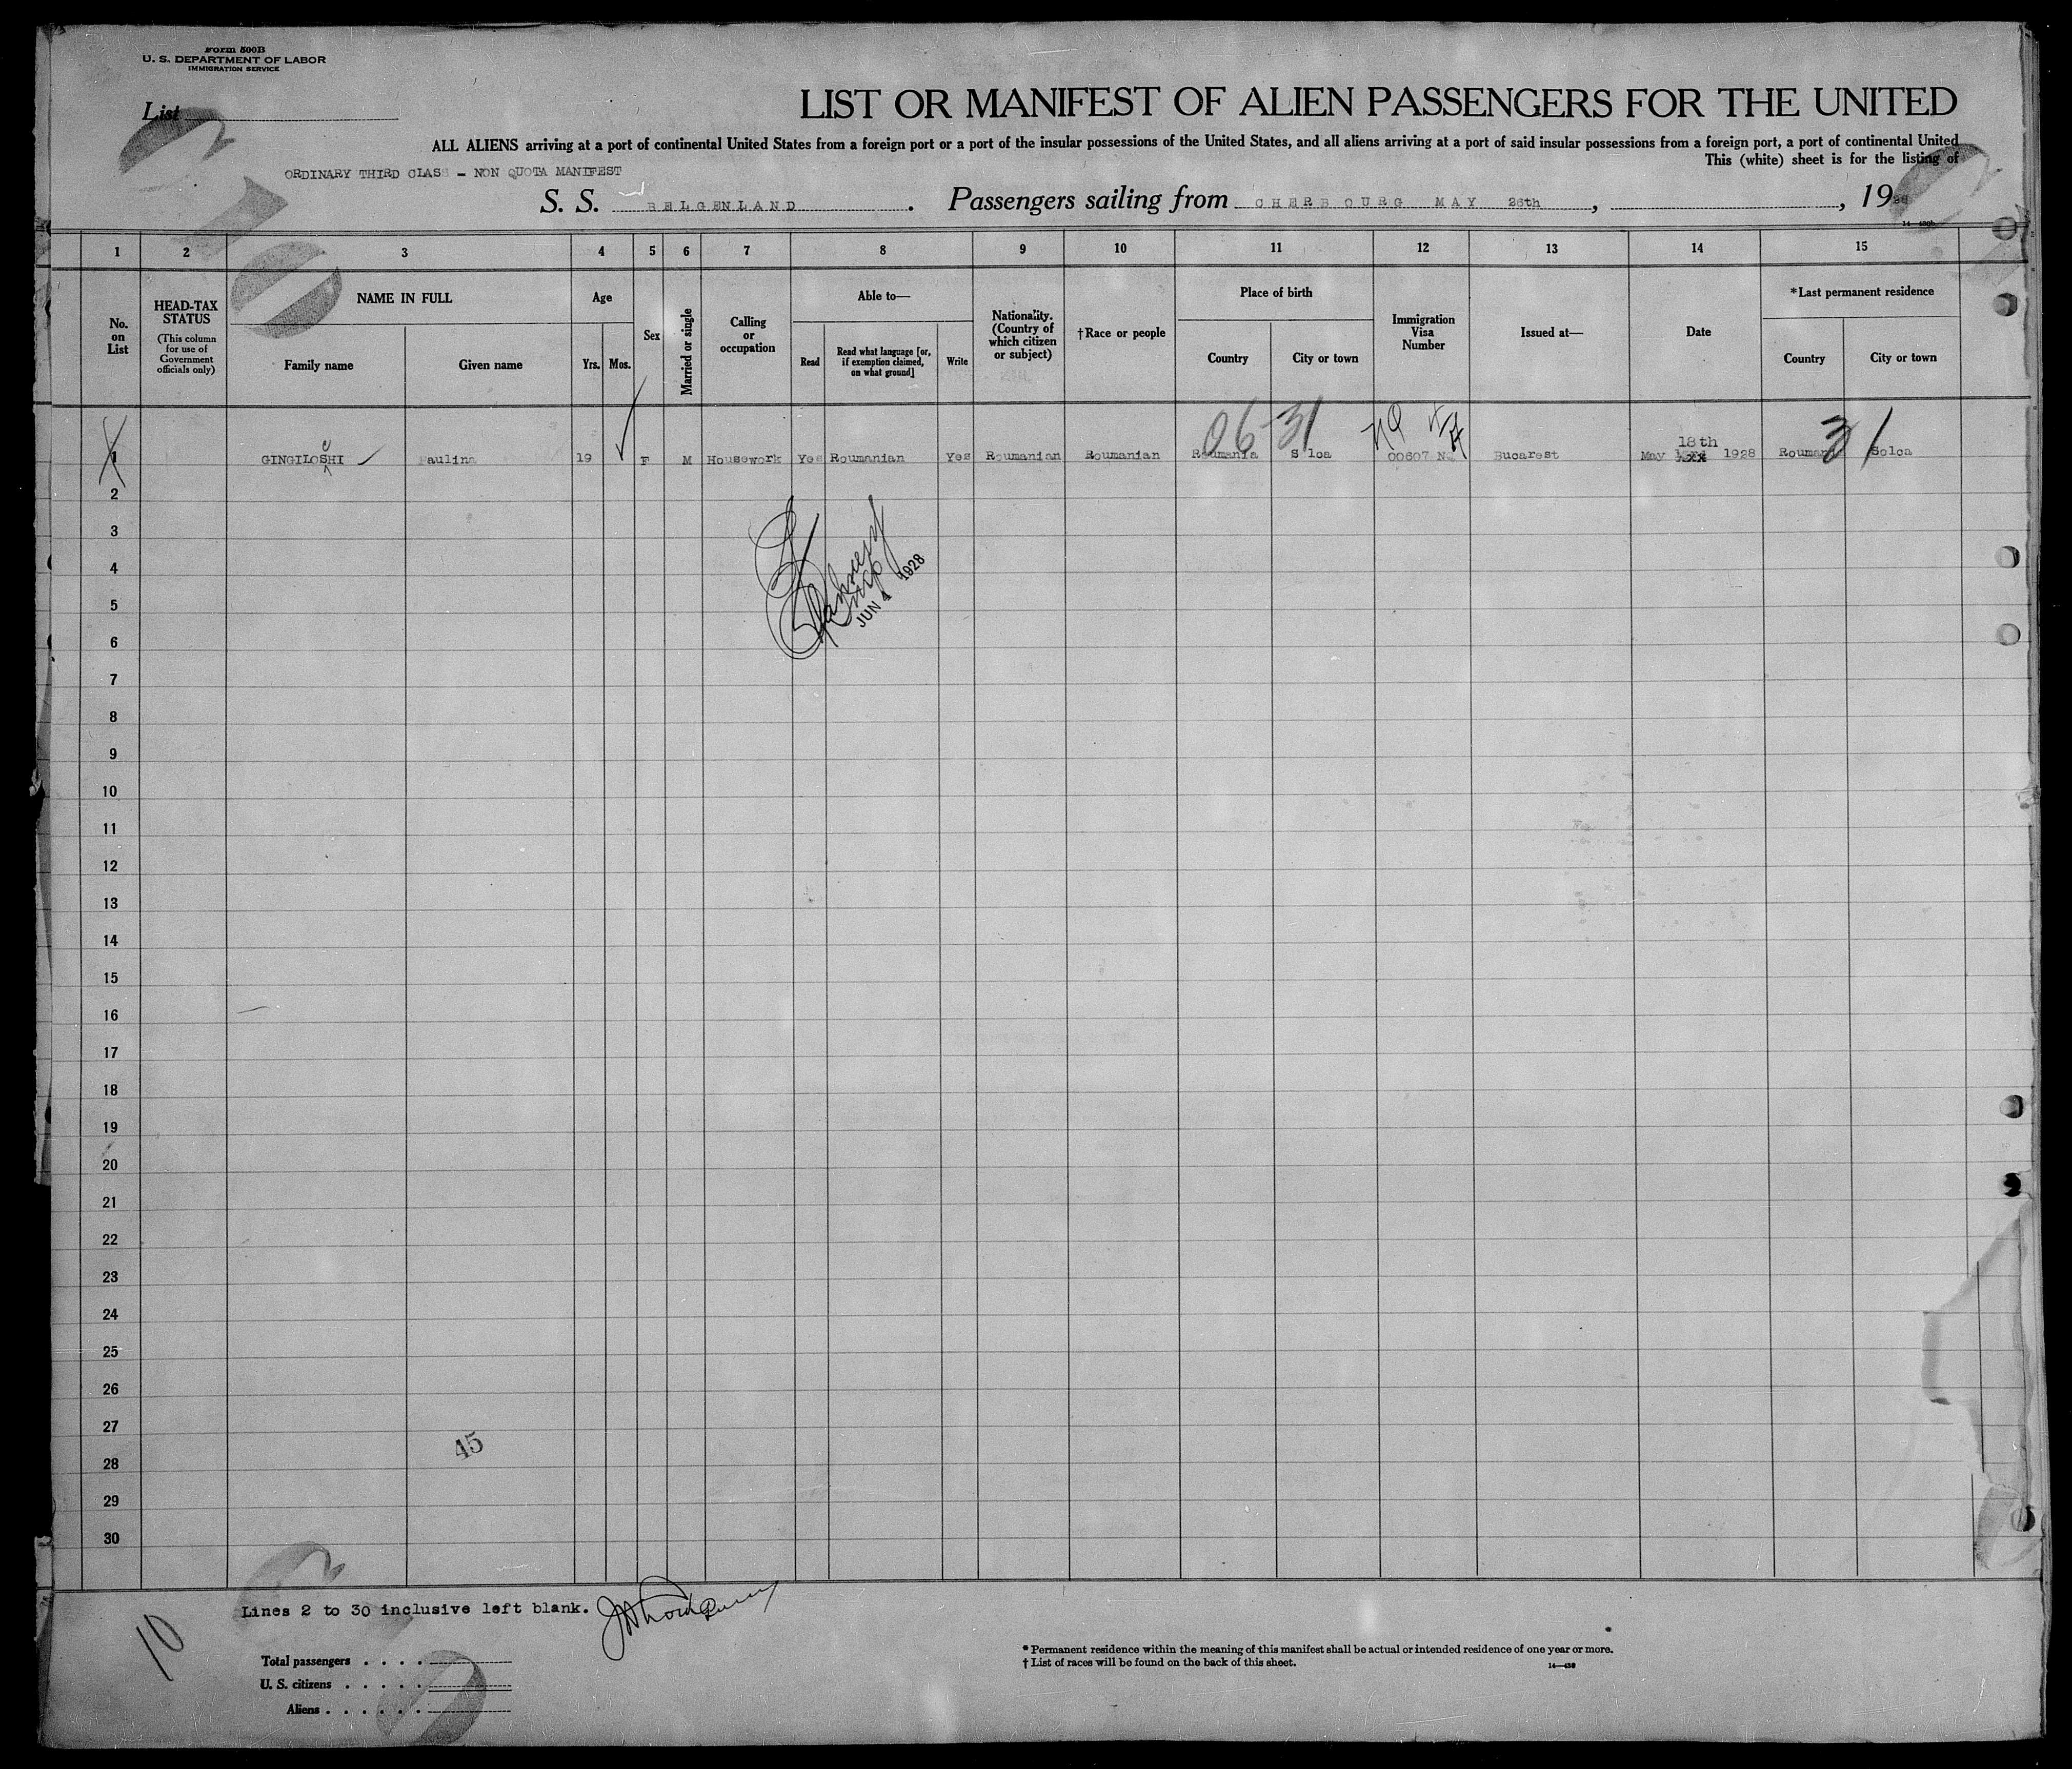 Form 500B
U. S. DEPARTMENT OF LABOR
IMMIGRATION SERVICE
List
LIST OR MANIFEST OF ALIEN PASSENGERS FOR THE UNITED
ALL ALIENS arriving at a port of continental United States from a foreign port or a port of the insular possessions of the United States, and all aliens arriving at a port of said insular possessions from a foreign port, a port of continental United
This (white) sheet is for the listing of
ORDINARY THIRD CLASS - NON QUOTA MANIFEST
S. S. BELGENLAND. Passengers sailing from CHERBOURG MAY 26th, , 1928
1 2 3 4 5 6 7 8 9 10 11 12 13 14 15
No. on List
HEAD-TAX STATUS
(This column for use of Government officials only)
NAME IN FULL
Family name Given name
Age
Yrs. Mos.
Sex
Married or single
Calling or occupation
Able to—
Read
Read what language [or, if exemption claimed, on what ground]
Write
Nationality. (Country of which citizen or subject)
†Race or people
Place of birth
Country City or town
Immigration Visa Number
Issued at—
Date
*Last permanent residence
Country City or town
06 31 NQ 31
18th
1 GINGILOSHI c Paulina 19 F M Housework Yes Roumanian Yes Roumanian Roumanian Roumania Solca 00607 NQ Bucarest May 1928 Roumania Solca
2
3
4
5
JUN 4 1928
6
7
8
9
10
11
12
13
14
15
16
17
18
19
20
21
22
23
24
25
26
27
45
28
29
30
Lines 2 to 30 inclusive left blank.
10
Total passengers . . . .
U. S. citizens . . . . .
Aliens . . . . . .
* Permanent residence within the meaning of this manifest shall be actual or intended residence of one year or more.
† List of races will be found on the back of this sheet.